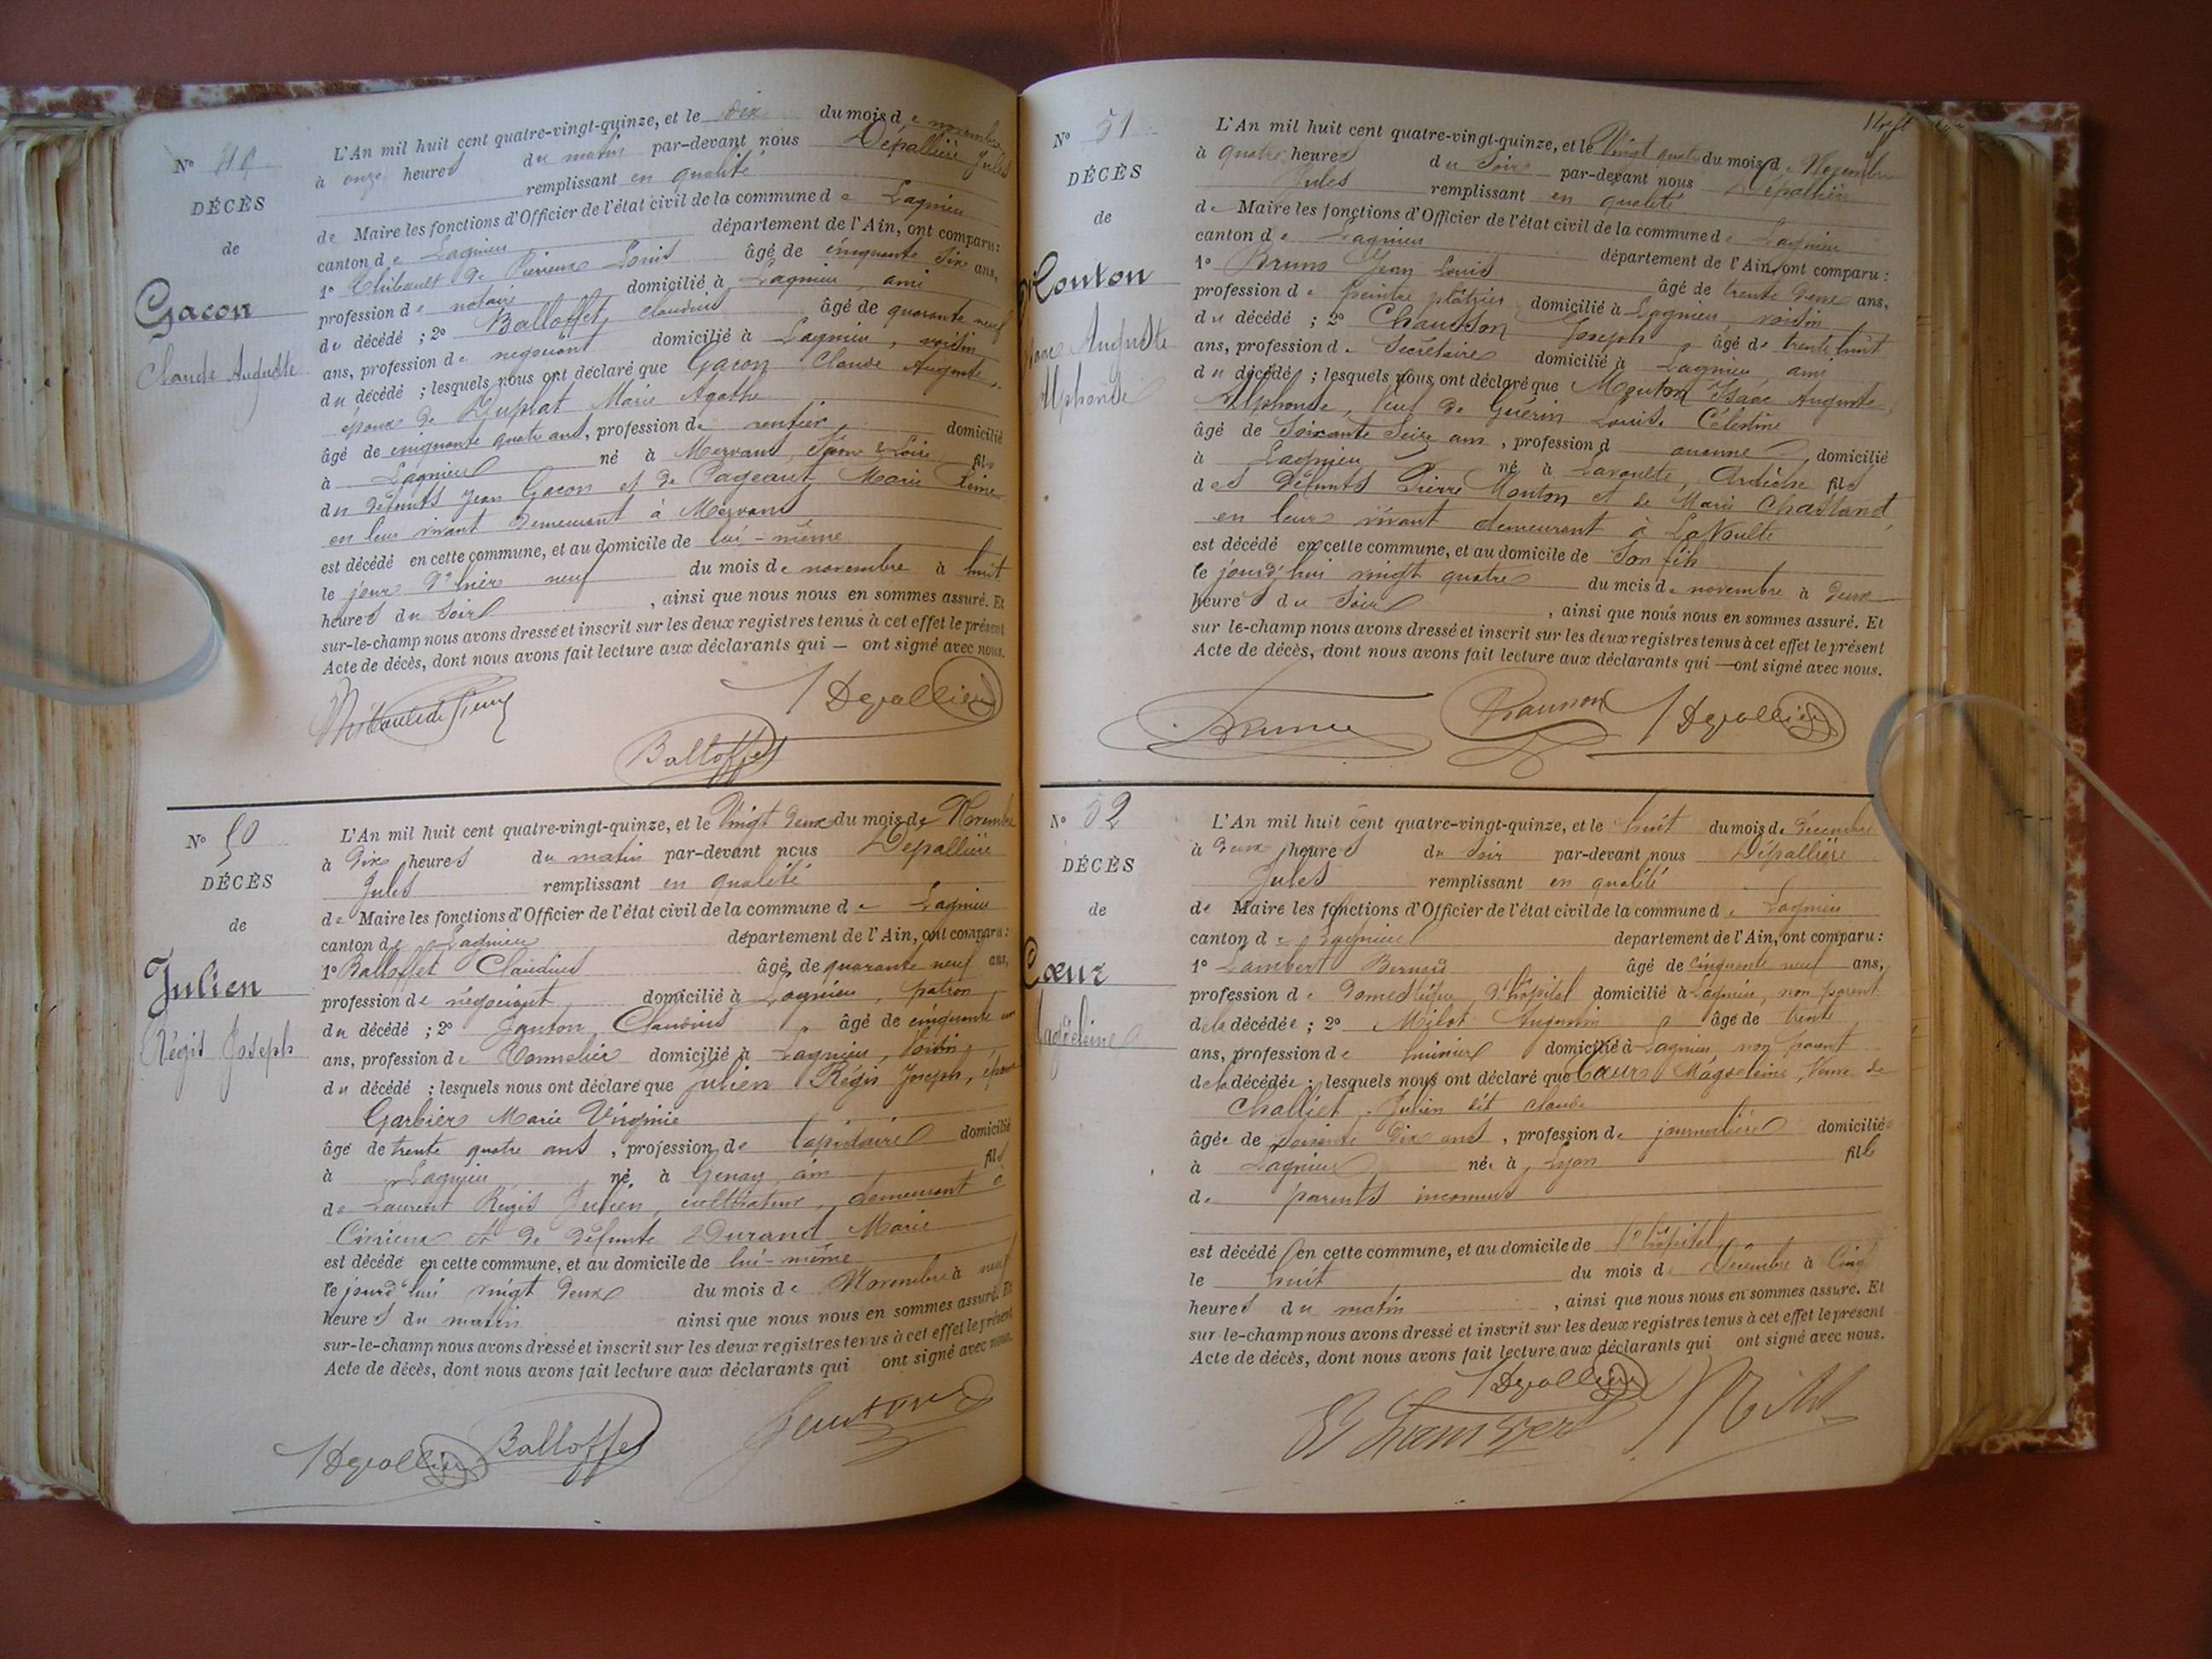 N° 49
DÉCÈS
de
Gacon
Claude Auguste
L'An mil huit cent quatre-vingt-quinze, et le dix du mois de novembre
à onze heures du matin par-devant nous Dépallière Jules
remplissant en qualité
de Maire les fonctions d'Officier de l'état civil de la commune de Lagnieu
canton de Lagnieu département de l'Ain, ont comparu:
1° Thibault de Louis âgé de cinquante six ans,
profession de notaire domicilié à Lagnieu, ami
du décédé ; 2° Balloffet, claudius âgé de quarante neuf
ans, profession de négociant domicilié à Lagnieu, voisin
du décédé ; lesquels nous ont déclaré que Gacon Claude Auguste,
époux de Duplat Marie Agathe
âgé de cinquante quatre ans, profession de rentier domicilié
à Lagnieu né à Mervans, Saône & Loire fils
du défunts Jean Gacon et de Pageaut Marie Reine
en leur vivant demeurant à Mervans
est décédé en cette commune, et au domicile de lui-même
le jour d'hier neuf du mois de novembre à huit
heures du soir, ainsi que nous nous en sommes assuré. Et
sur-le-champ nous avons dressé et inscrit sur les deux registres tenus à cet effet le présent
Acte de décès, dont nous avons fait lecture aux déclarants qui — ont signé avec nous.
J Depallière
Balloffet
N° 50
DÉCÈS
de
Julien
Régis Joseph
L'An mil huit cent quatre-vingt-quinze, et le Vingt deux du mois de Novembre
à dix heures du matin par-devant nous Dépallière
Jules remplissant en qualité
de Maire les fonctions d'Officier de l'état civil de la commune de Lagnieu
canton de Lagnieu département de l'Ain, ont comparu:
1° Balloffet Claudius âgé de quarante neuf ans,
profession de négociant, domicilié à Lagnieu, patron
du décédé ; 2° Janton, Claudius âgé de cinquante un
ans, profession de Tonnelier domicilié à Lagnieu, voisin
du décédé ; lesquels nous ont déclaré que Julien Régis Joseph, époux
Garbier Marie Virginie
âgé de trente quatre ans, profession de lapidaire domicilié
à Lagnieu né à Genay, ain fils
de Laurent Régis Julien, cultivateur, demeurant à
et de défunte Durand Marie
est décédé en cette commune, et au domicile de lui-même
le jourd'hui vingt deux du mois de Novembre à neuf
heures du matin ainsi que nous nous en sommes assuré. Et
sur-le-champ nous avons dressé et inscrit sur les deux registres tenus à cet effet le présent
Acte de décès, dont nous avons fait lecture aux déclarants qui ont signé avec nous.
J Depallière Balloffet Janton
N° 51
DÉCÈS
de
Mouton
Isaac Auguste
Alphonse
L'An mil huit cent quatre-vingt-quinze, et le Vingt quatre du mois de Novembre
à quatre heures du Soir par-devant nous Dépallière
Jules remplissant en qualité
de Maire les fonctions d'Officier de l'état civil de la commune de Lagnieu
canton de Lagnieu département de l'Ain, ont comparu :
1° Bruno Jean Louis âgé de trente deux ans,
profession de peintre plâtrier domicilié à Lagnieu voisin
du décédé ; 2° Chausson Joseph âgé de trente huit
ans, profession de Secrétaire domicilié à Lagnieu, ami
du décédé ; lesquels nous ont déclaré que Mouton Isaac Auguste,
Alphonse, Veuf de Guérin Louise Célestine
âgé de Soixante Seize ans, profession d aucune domicilié
à Lagnieu né à Lavoulte, Ardèche fils
des défunts Pierre Mouton et de Marie Chastand
en leurs vivant demeurant à La Voulte
est décédé en cette commune, et au domicile de Son fils
le jourd'hui vingt quatre du mois de novembre à deux
heures du Soir, ainsi que nous nous en sommes assuré. Et
sur le-champ nous avons dressé et inscrit sur les deux registres tenus à cet effet le présent
Acte de décès, dont nous avons fait lecture aux déclarants qui — ont signé avec nous.
Bruno Chausson J Depallière
N° 52
DÉCÈS
de
Cœur
Magdeleine
L'An mil huit cent quatre-vingt-quinze, et le huit du mois de Décembre
à deux heures du soir par-devant nous Dépallière
Jules remplissant en qualité
de Maire les fonctions d'Officier de l'état civil de la commune de Lagnieu
canton de Lagnieu département de l'Ain, ont comparu :
1° Lambert Bernard âgé de cinquante neuf ans,
profession de domestique, d'hôpital domicilié à Lagnieu, non parent
de la décédée ; 2° Milot âgé de trente
ans, profession de domicilié à Lagnieu non parent
de la décédée ; lesquels nous ont déclaré que Cœur Magdeleine, Veuve de
Challiet, Julien dit claude
âgée de Soixante Dix ans, profession de journalière domiciliée
à Lagnieu née à Lyon fille
de parents inconnus
est décédé en cette commune, et au domicile de l'hôpital
le huit du mois de Décembre à Cinq
heures du matin, ainsi que nous nous en sommes assuré. Et
sur le-champ nous avons dressé et inscrit sur les deux registres tenus à cet effet le présent
Acte de décès, dont nous avons fait lecture aux déclarants qui ont signé avec nous.
J Depallière